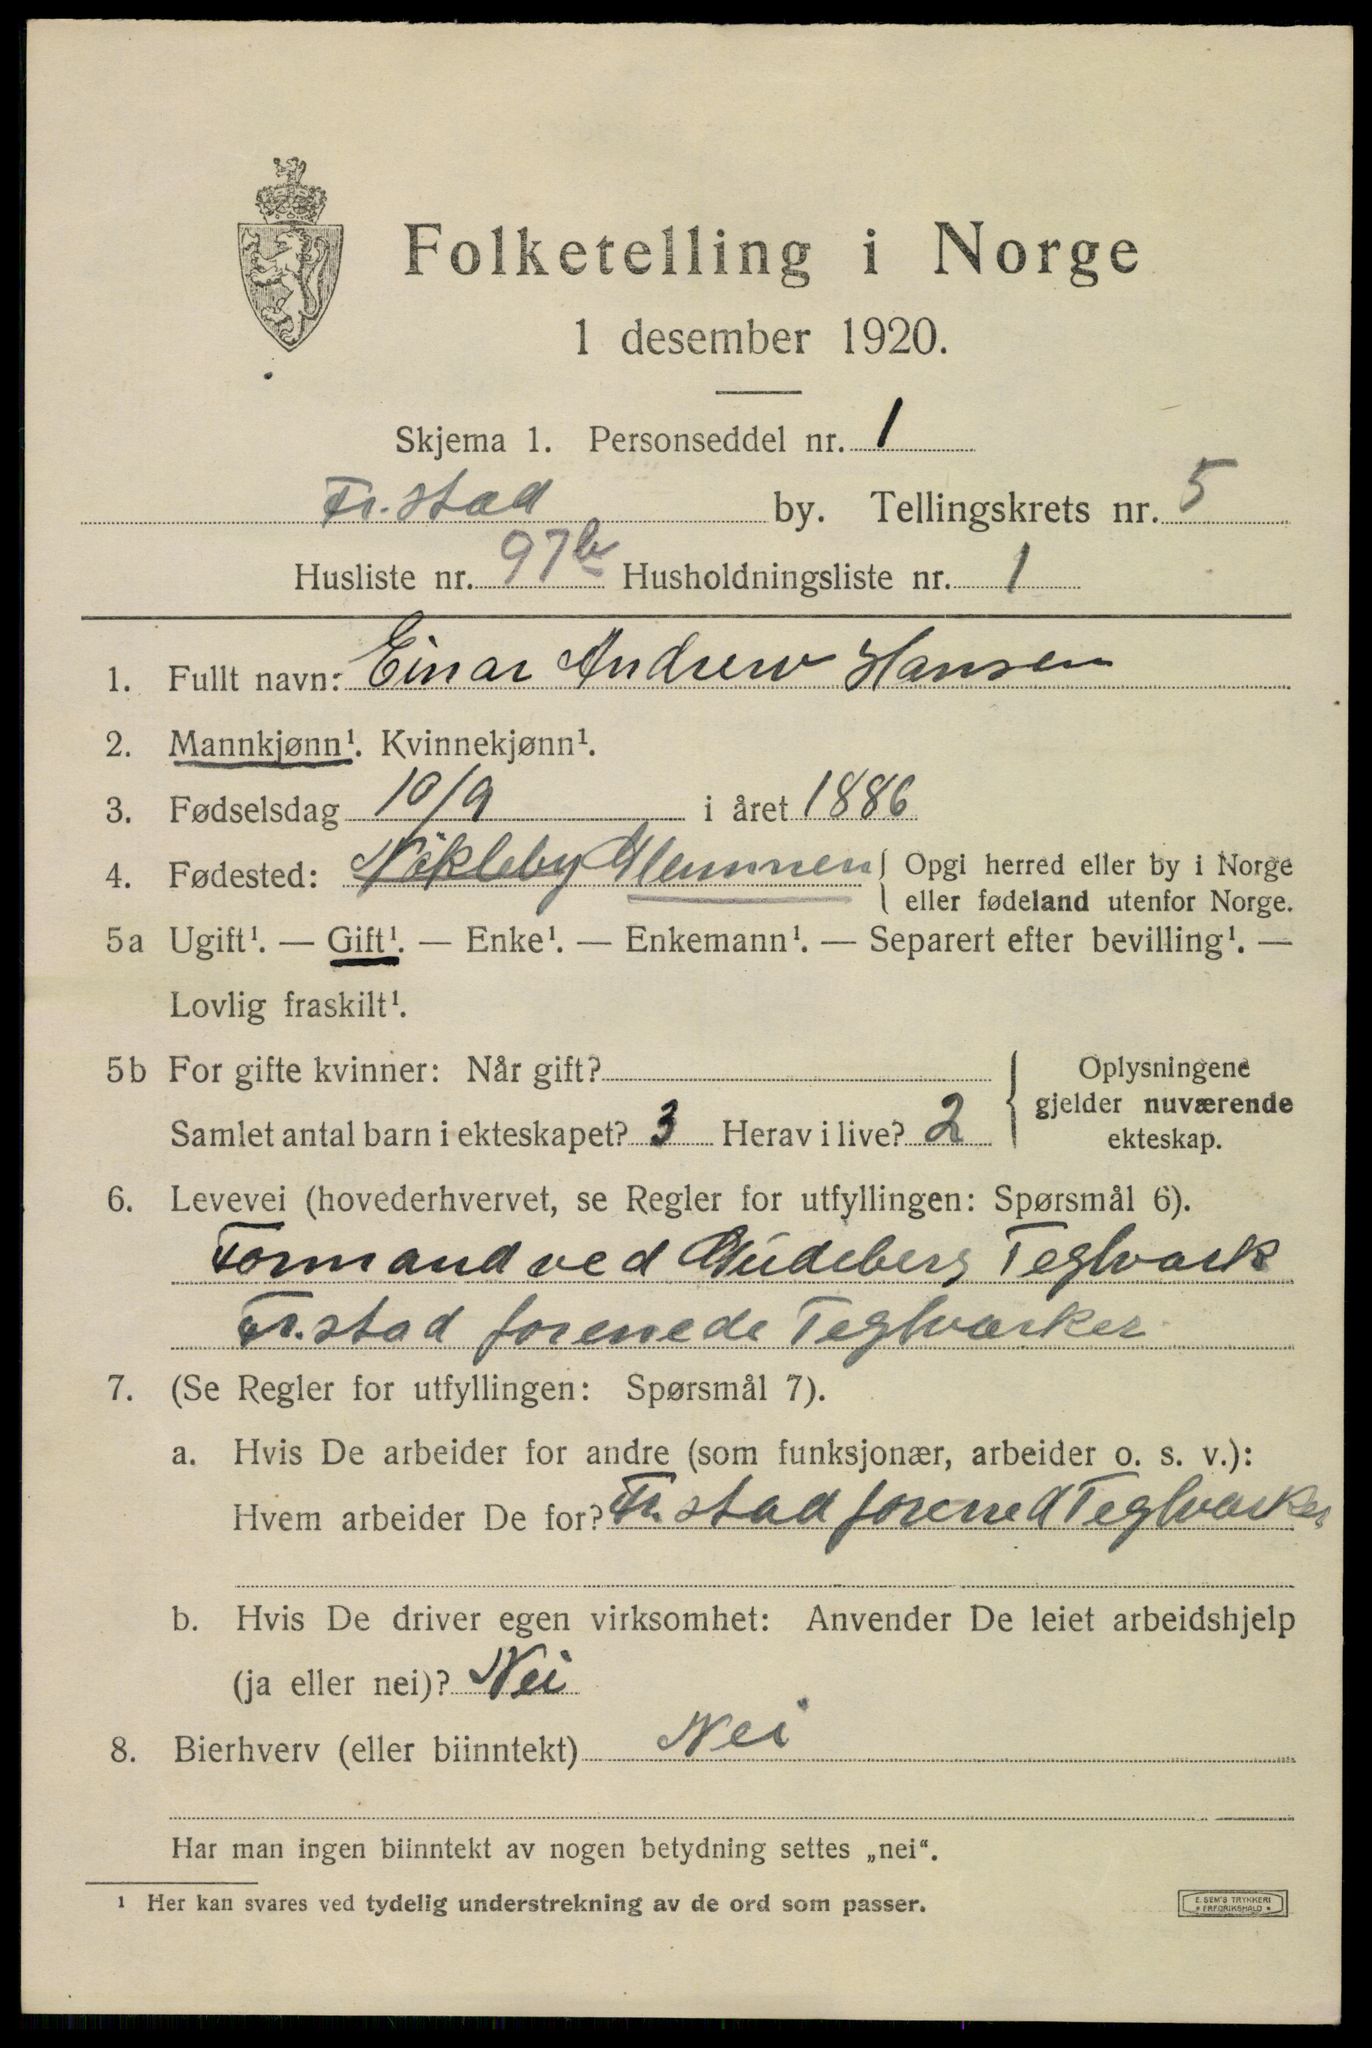 Folketelling i Norge
1 desember 1920.
Skjema 1. Personseddel nr. 1
Fr.stad by. Tellingskrets nr. 5
Husliste nr. 97b Husholdningsliste nr. 1
1. Fullt navn: Einar Andrew Hansen
2. Mannkjønn¹. Kvinnekjønn¹.
3. Fødselsdag 10/9 i året 1886
4. Fødested: Nökleby Glemmen { Opgi herred eller by i Norge
eller fødeland utenfor Norge.
5a Ugift¹. — Gift¹. — Enke¹. — Enkemann¹. — Separert efter bevilling¹. —
Lovlig fraskilt¹.
5b For gifte kvinner: Når gift? { Oplysningene
gjelder nuværende
Samlet antal barn i ekteskapet? 3 Herav i live? 2 ekteskap.
6. Levevei (hovederhvervet, se Regler for utfyllingen: Spørsmål 6).
Formand ved Gudeberg Teglværk
Fr.stad forenede Teglværker
7. (Se Regler for utfyllingen: Spørsmål 7).
a. Hvis De arbeider for andre (som funksjonær, arbeider o. s. v.):
Hvem arbeider De for? Fr.stad forened Teglværker
b. Hvis De driver egen virksomhet: Anvender De leiet arbeidshjelp
(ja eller nei)? Nei
8. Bierhverv (eller biinntekt) Nei
Har man ingen biinntekt av nogen betydning settes „nei“.
¹ Her kan svares ved tydelig understrekning av de ord som passer.
E. SEM'S TRYKKERI
* FREDRIKSHALD *